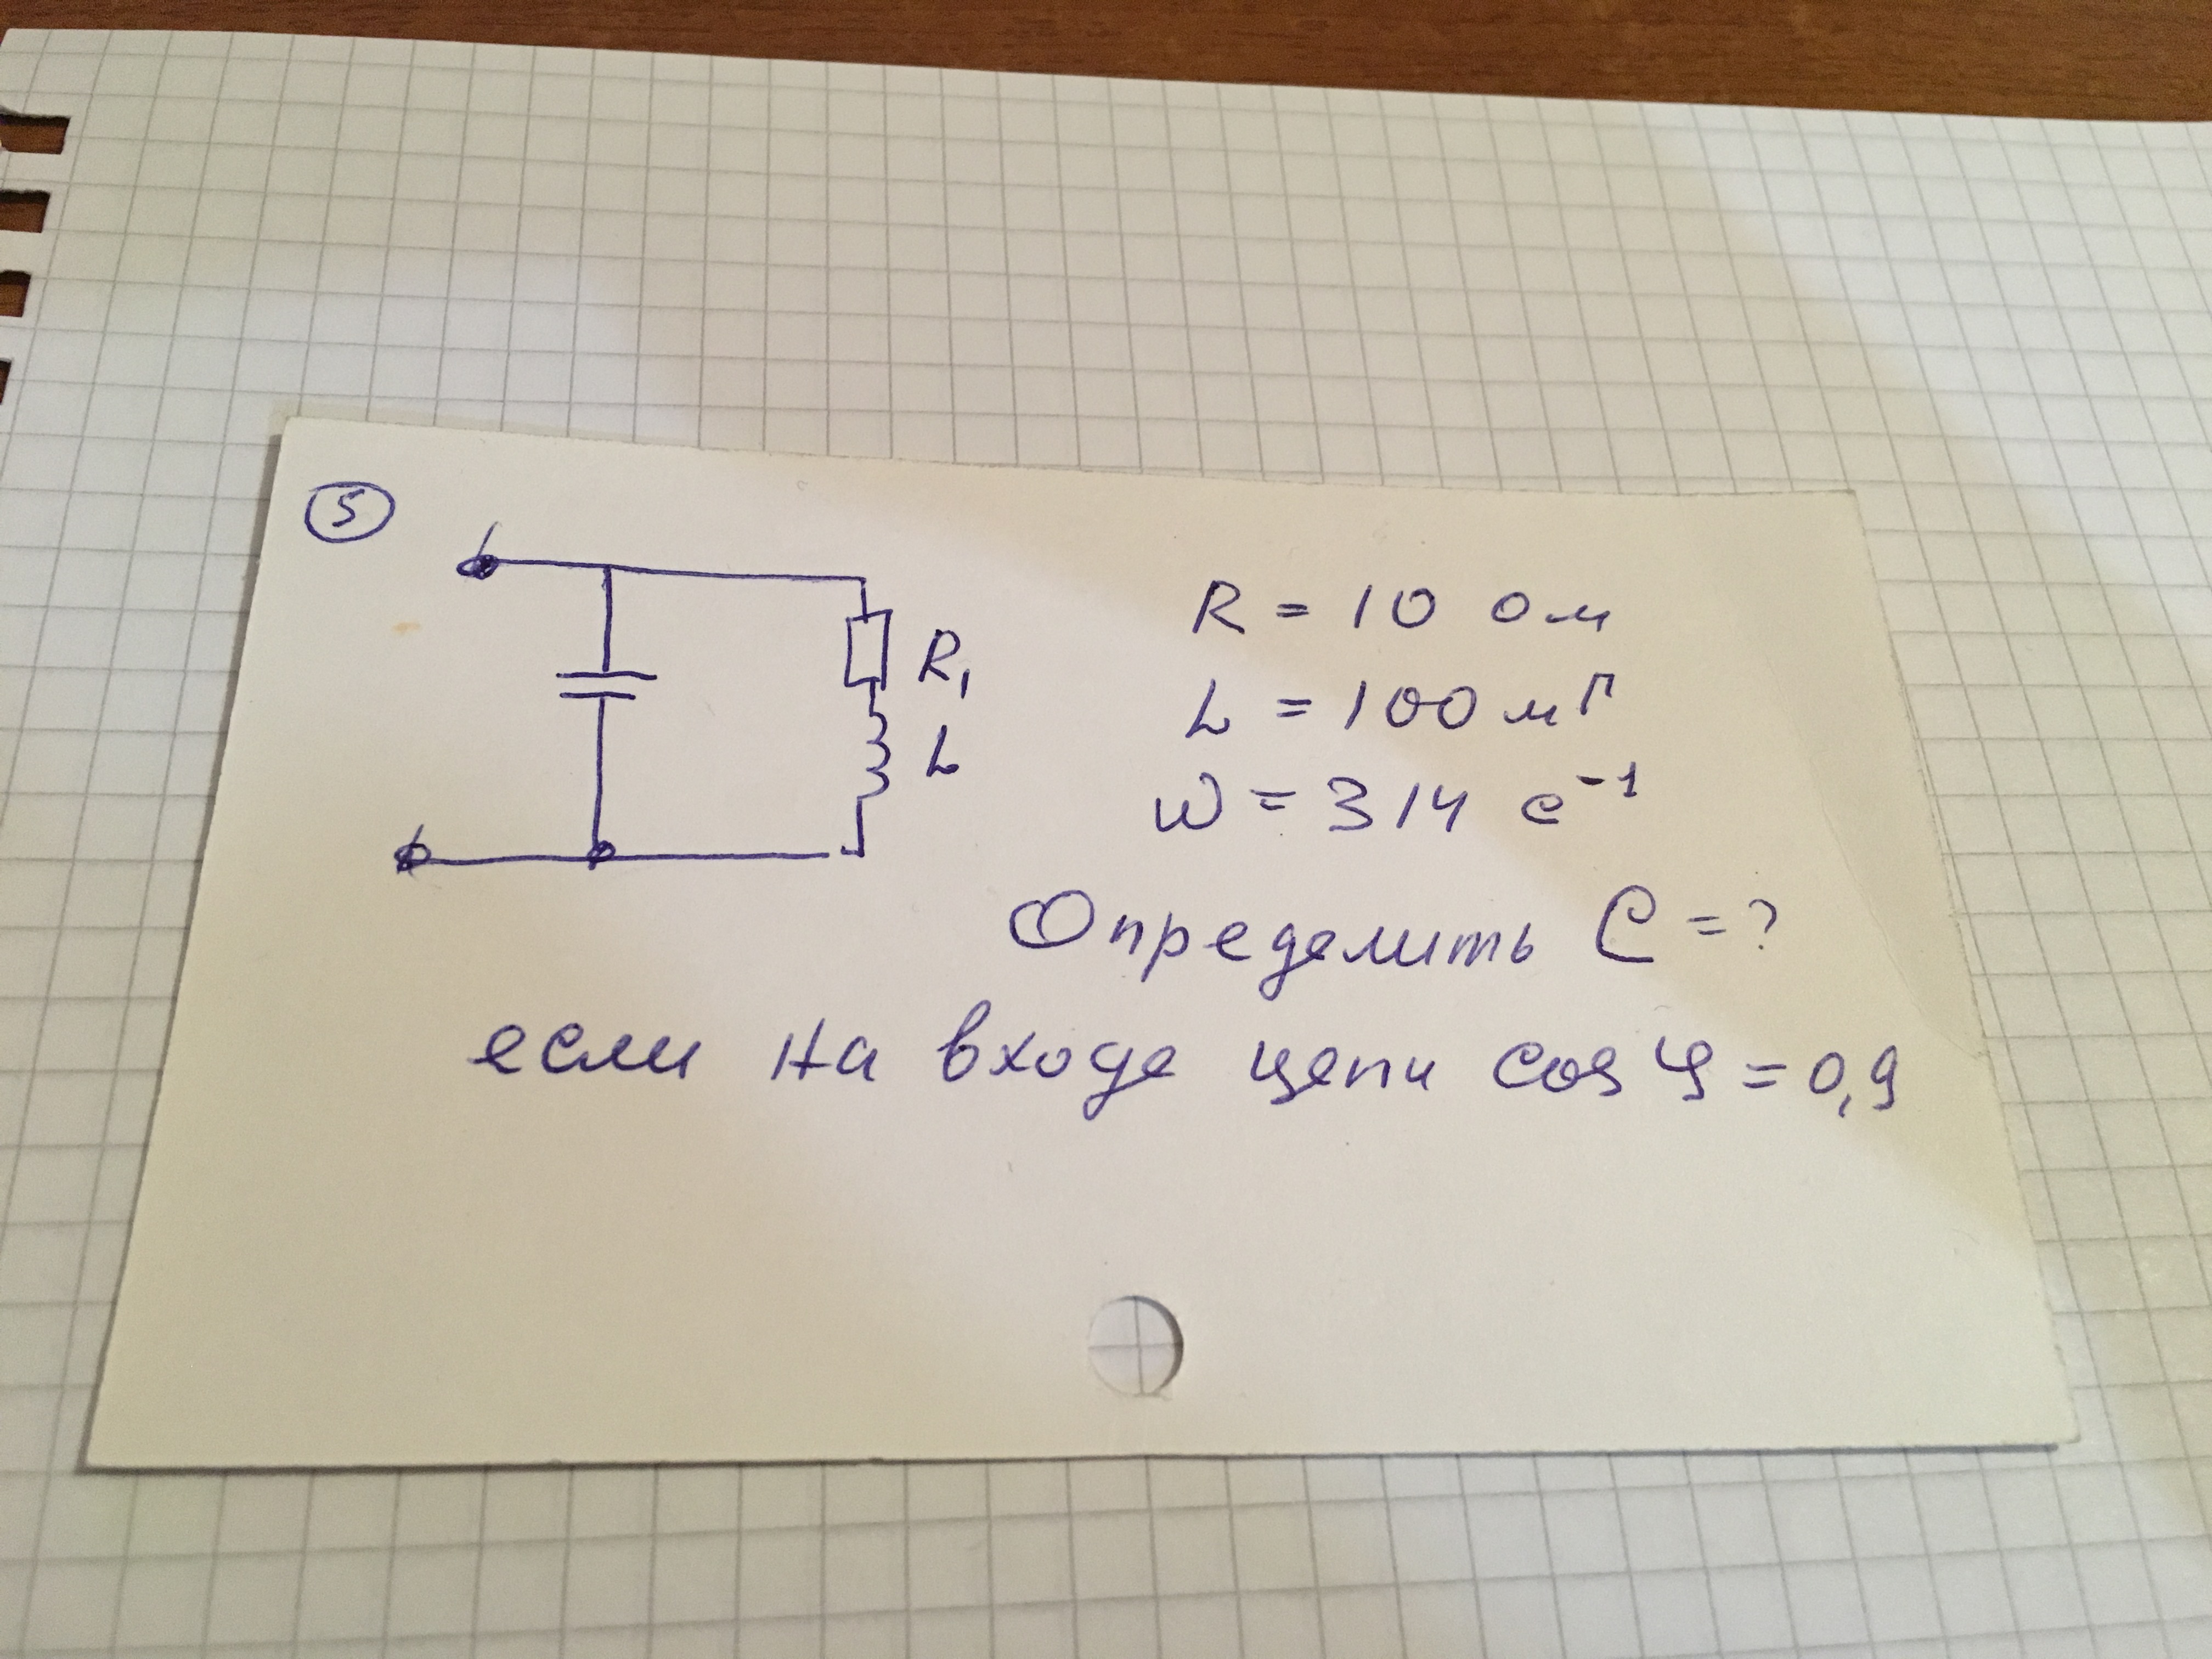 5
R₁
L
R = 10 Ом
L = 100 мГ
ω = 314 с⁻¹
Определить C = ?
если на входе цепи cos φ = 0,9